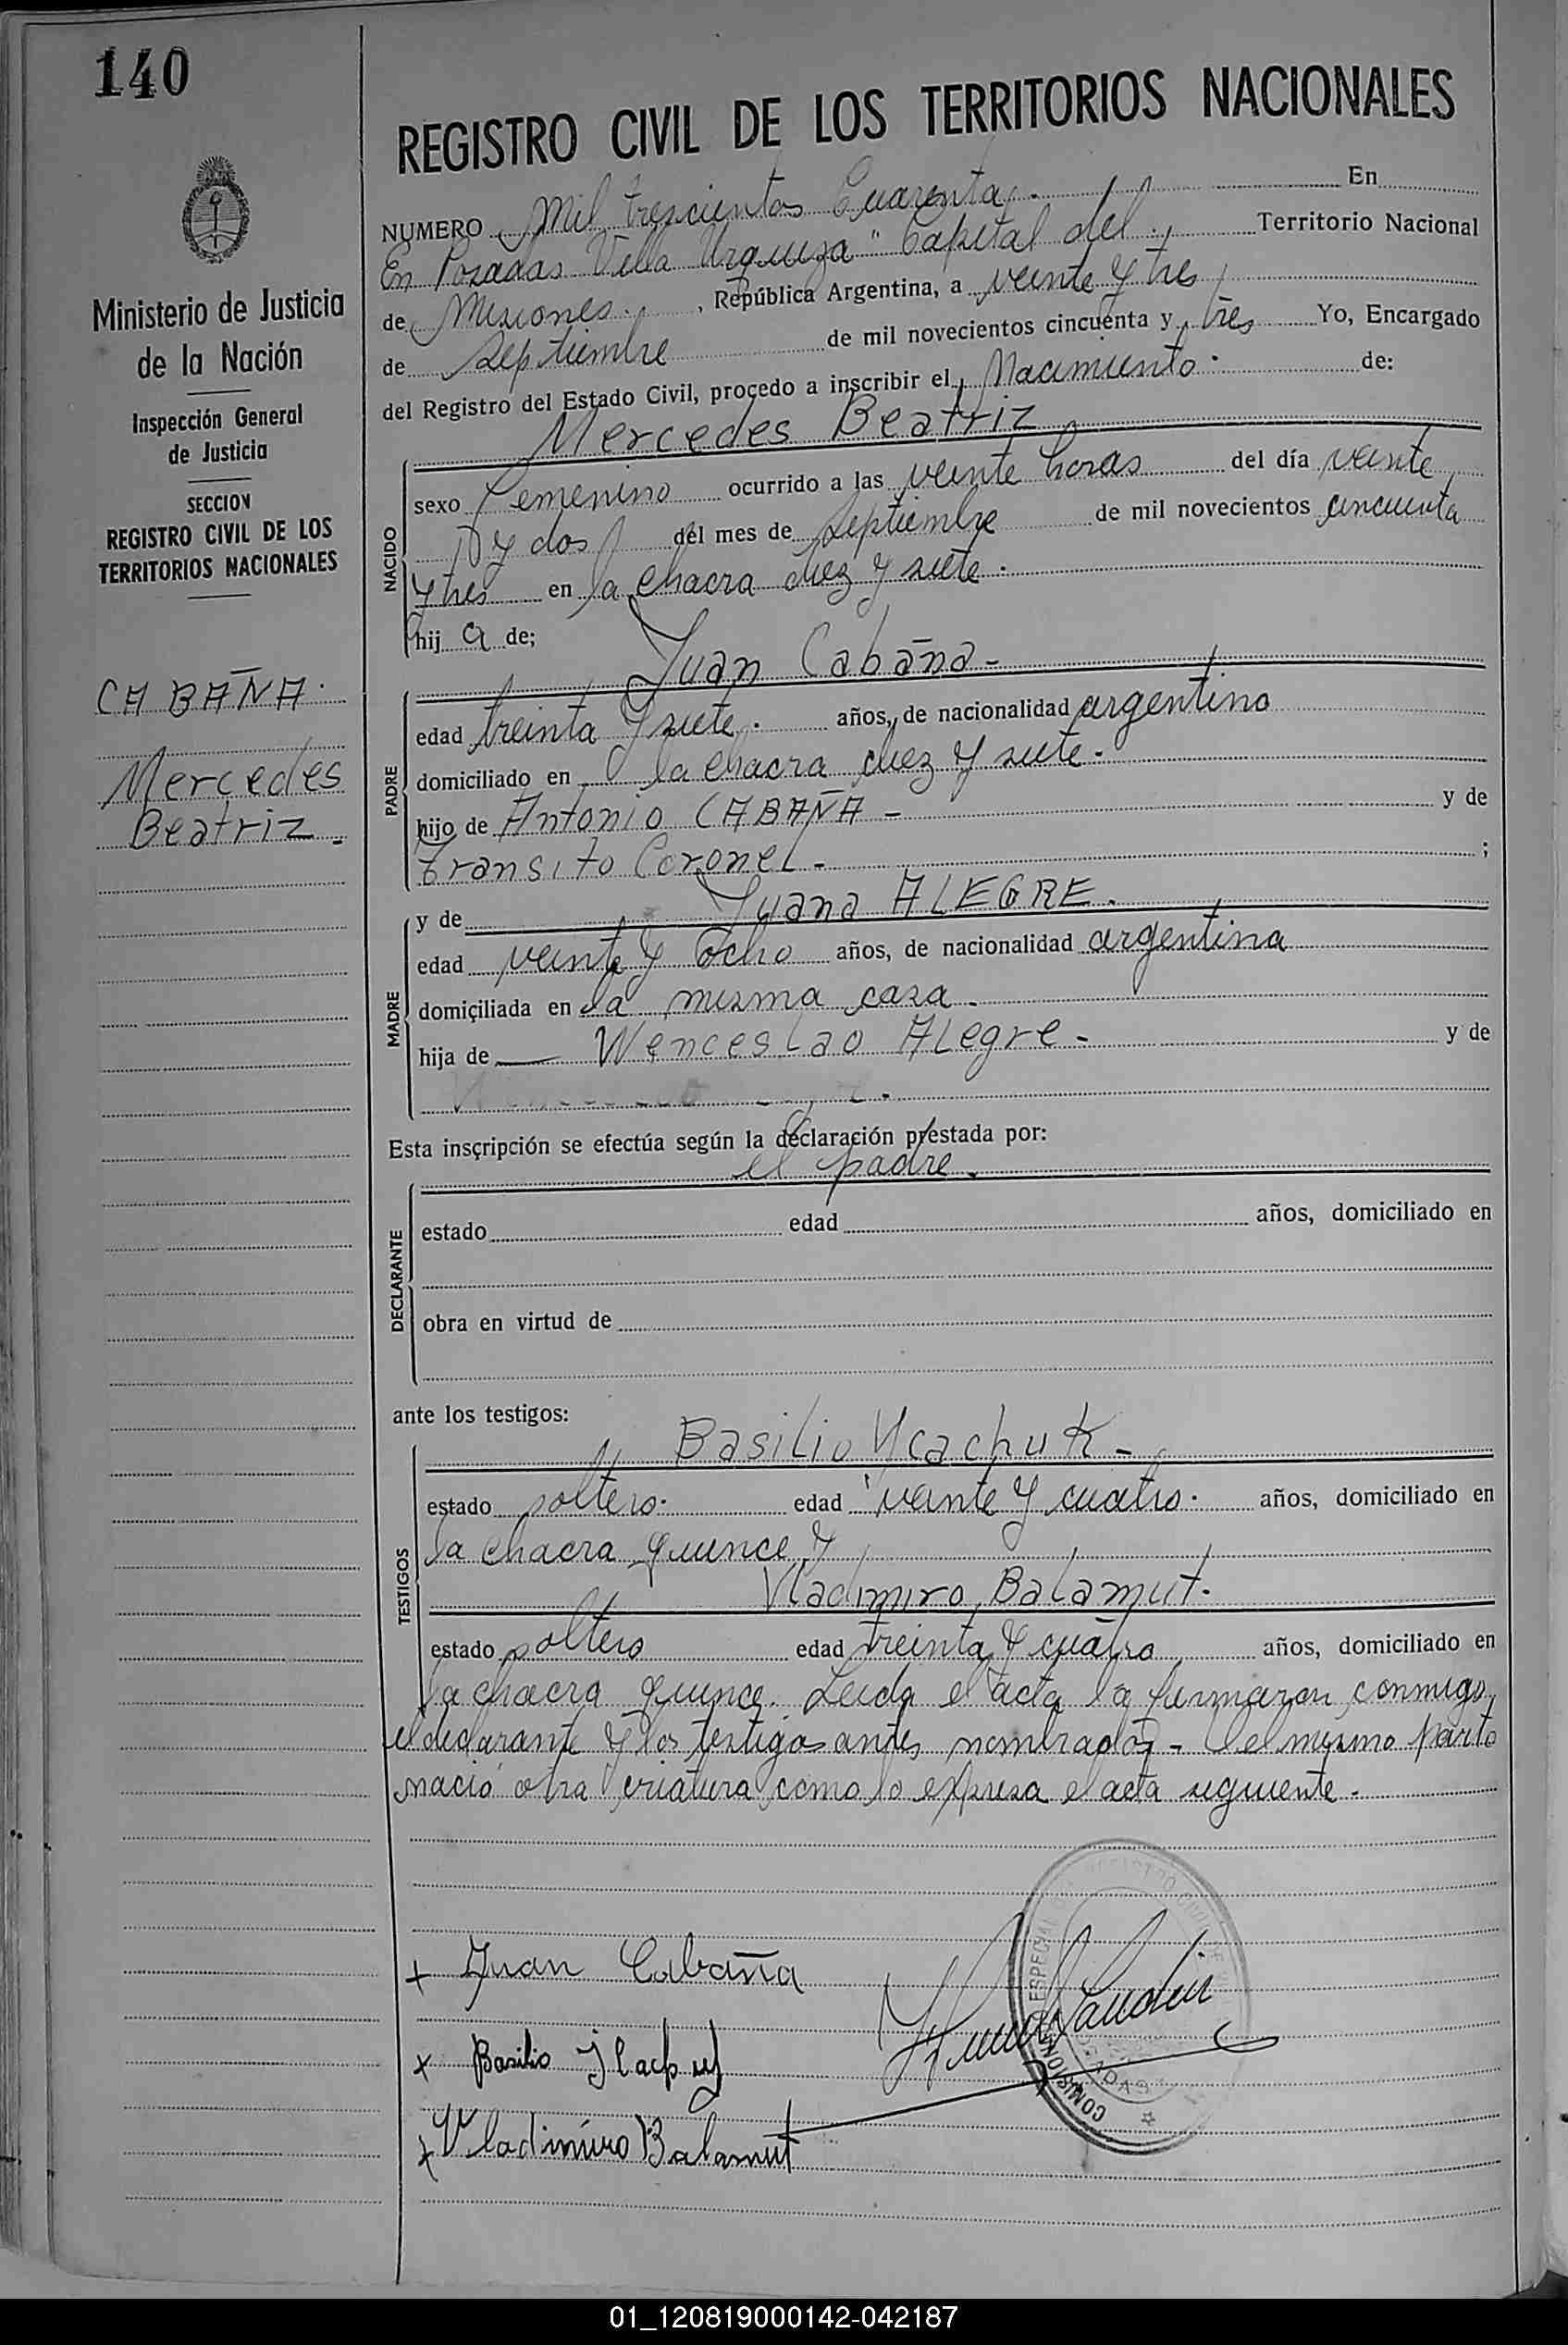 140
REGISTRO CIVIL DE LOS TERRITORIOS NACIONALES
Ministerio de Justicia
de la Nación
Inspección General
de Justicia
SECCION
REGISTRO CIVIL DE LOS
TERRITORIOS NACIONALES
CABAÑA.
Mercedes
Beatriz -
NUMERO Mil trescientos Cuarenta.- En
En Posadas Villa Urquiza " Capital del Territorio Nacional
de Misiones. , República Argentina, a veinte y tres
de Septiembre de mil novecientos cincuenta y tres Yo, Encargado
del Registro del Estado Civil, procedo a inscribir el Nacimiento. de:
Mercedes Beatriz
NACIDO
sexo femenino ocurrido a las veinte horas del día veinte
y dos del mes de Septiembre de mil novecientos cincuenta
y tres en la chacra diez y siete.
hij a de;
Juan Cabaña-
PADRE
edad treinta y siete. años, de nacionalidad argentino
domiciliado en la chacra diez y siete-
hijo de Antonio CABAÑA - y de
Transito Coronel - ;
y de Juana ALEGRE.
MADRE
edad veinte y ocho años, de nacionalidad argentina
domiciliada en la misma casa.
hija de — Wenceslao Alegre - y de
Esta inscripción se efectúa según la declaración prestada por:
el padre.
DECLARANTE
estado edad años, domiciliado en
obra en virtud de
ante los testigos:
Basilio Ycachuk -
TESTIGOS
estado soltero. edad veinte y cuatro. años, domiciliado en
la chacra quince y
Vladimiro Balamut.
estado soltero edad treinta y cuatro años, domiciliado en
la chacra quince. Leida el acta la firmaron conmigo,
el declarante y los testigos antes nombrados - Del mismo parto
nació otra criatura como lo expresa el acta siguiente.
+ Juan Cabaña
x Basilio
x Vladimiro Balamut
COMISION ESPECIAL
01_120819000142-042187